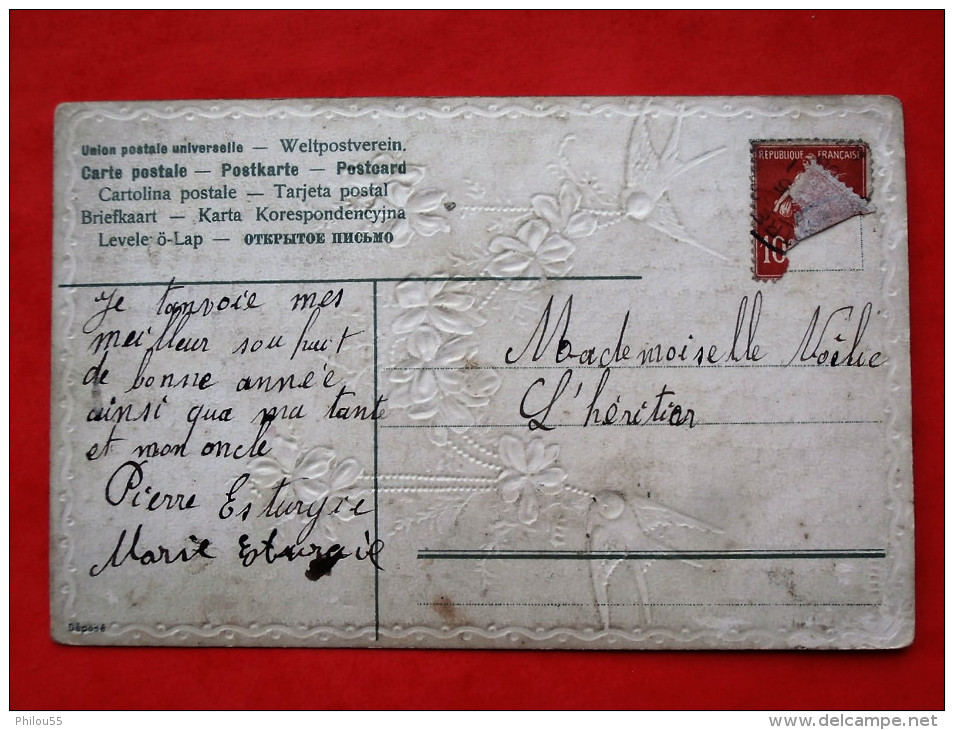 Union postale universelle — Weltpostverein.
Carte postale — Postkarte — Postcard
Cartolina postale — Tarjeta postal
Briefkaart — Karta Korespondencyjna
Levele ö-Lap — ОТКРЫТОЕ ПИСЬМО
REPUBLIQUE FRANÇAISE
10
Je tanvoie mes
meilleur souhait
de bonne année
ainsi qua ma tante
et mon oncle
Pierre Esturgie
Marie Esturgie
Mademoiselle Noëlie
L'héritier
Déposé
Philou55
www.delcampe.net